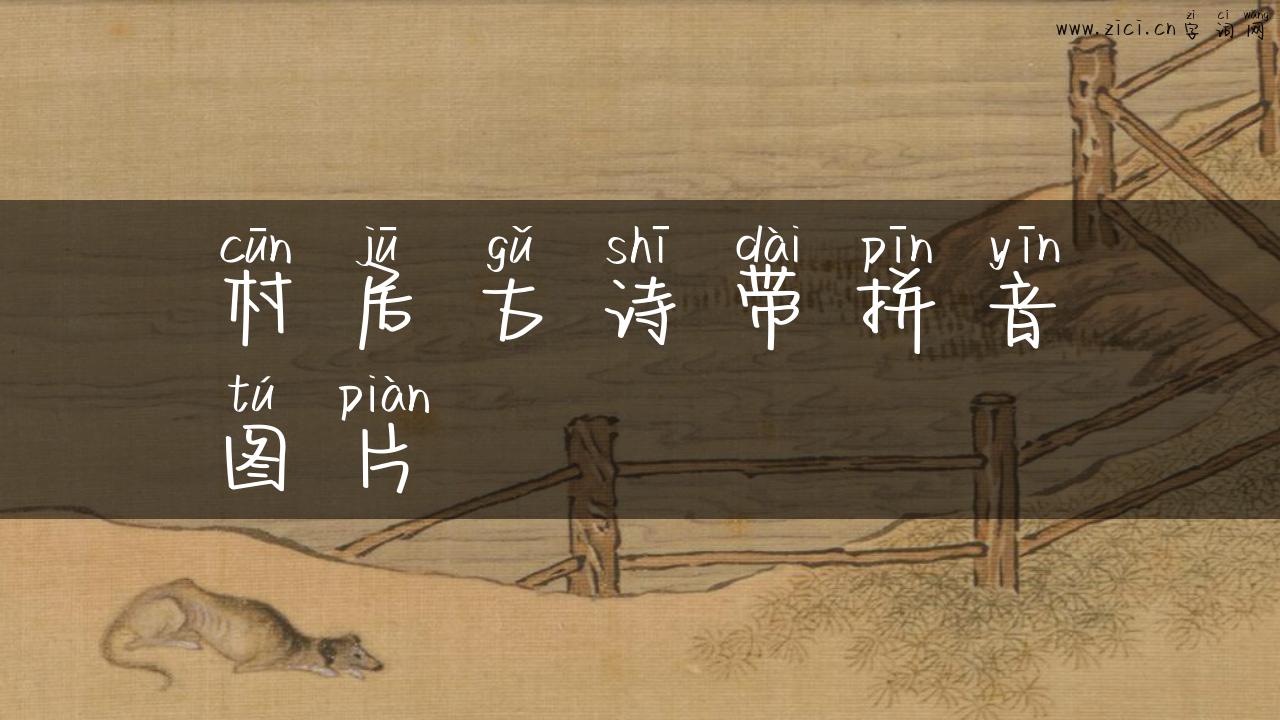 zì cí wǎng
www.zici.cn 字词网
cūn jū gǔ shī dài pīn yīn
村居古诗带拼音
tú piàn
图片